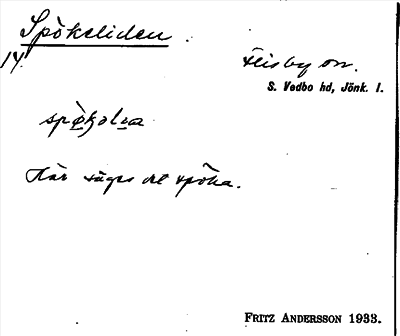 Spökeliden.
14.
Flisby sn.
S. Vedbo hd, Jönk. l.
Här säges det spöka.
FRITZ ANDERSSON 1933.